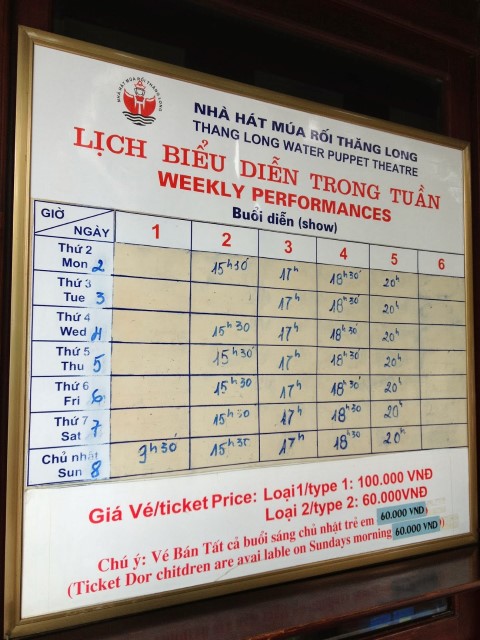 NHÀ HÁT MÚA RỐI THĂNG LONG
NHÀ HÁT MÚA RỐI THĂNG LONG
THANG LONG WATER PUPPET THEATRE
LỊCH BIỂU DIỄN TRONG TUẦN
WEEKLY PERFORMANCES
Buổi diễn (show)
GIỜ NGÀY 1 2 3 4 5 6
Thứ 2 Mon 2 15h30' 17h 18h30' 20h
Thứ 3 Tue 3 17h 18h30' 20h
Thứ 4 Wed 4 15h30 17h 18h30' 20h
Thứ 5 Thu 5 15h30' 17h 18h30' 20h
Thứ 6 Fri 6 15h30 17h 18h30' 20h
Thứ 7 Sat 7 15h30 17h 18h30 20h
Chủ nhật Sun 8 9h30' 15h30 17h 18h30 20h
Giá Vé/ticket Price: Loại1/type 1: 100.000 VNĐ
Loại 2/type 2: 60.000VNĐ
Chú ý: Vé Bán Tất cả buổi sáng chủ nhật trẻ em 60.000 VNĐ
(Ticket Dor chitdren are avai lable on Sundays morning 60.000 VNĐ)